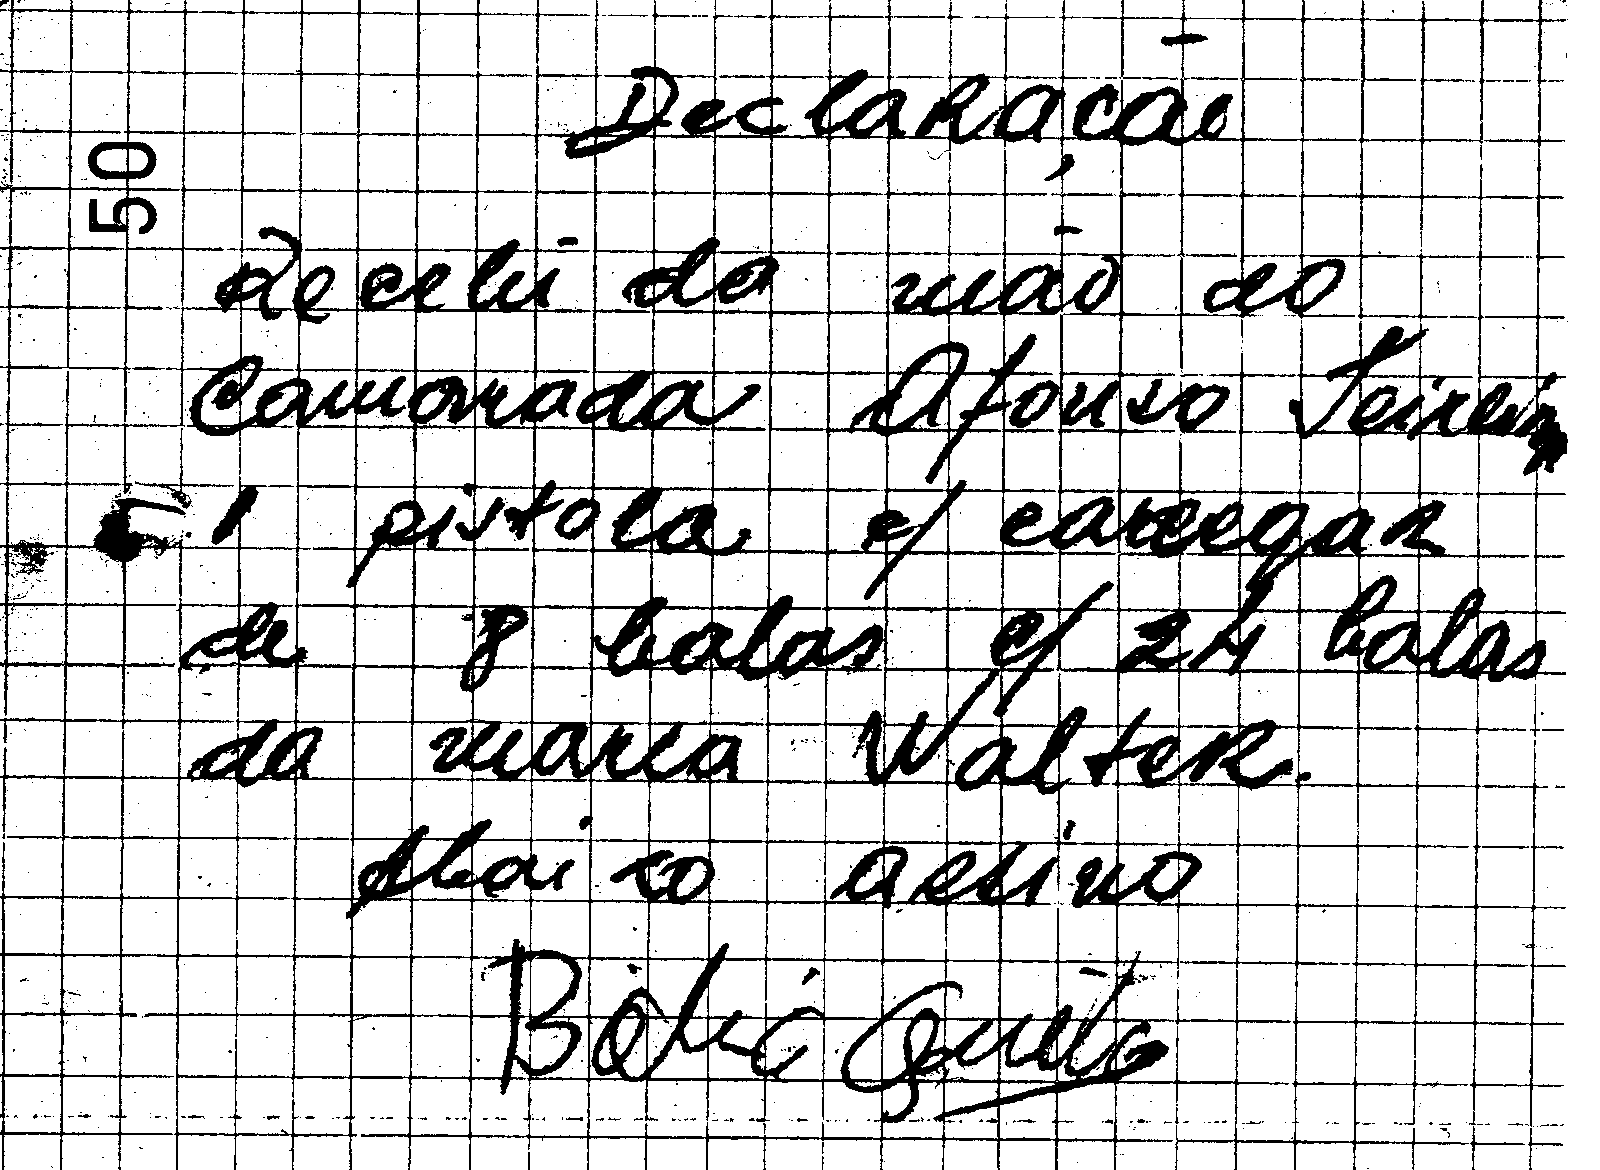 Declaração
50
Recebi da mão do
Camarada Afonso Teixeira
1 pistola c/ carregar
de 8 balas c/ 24 balas
da marca Walter.
Abaixo assino